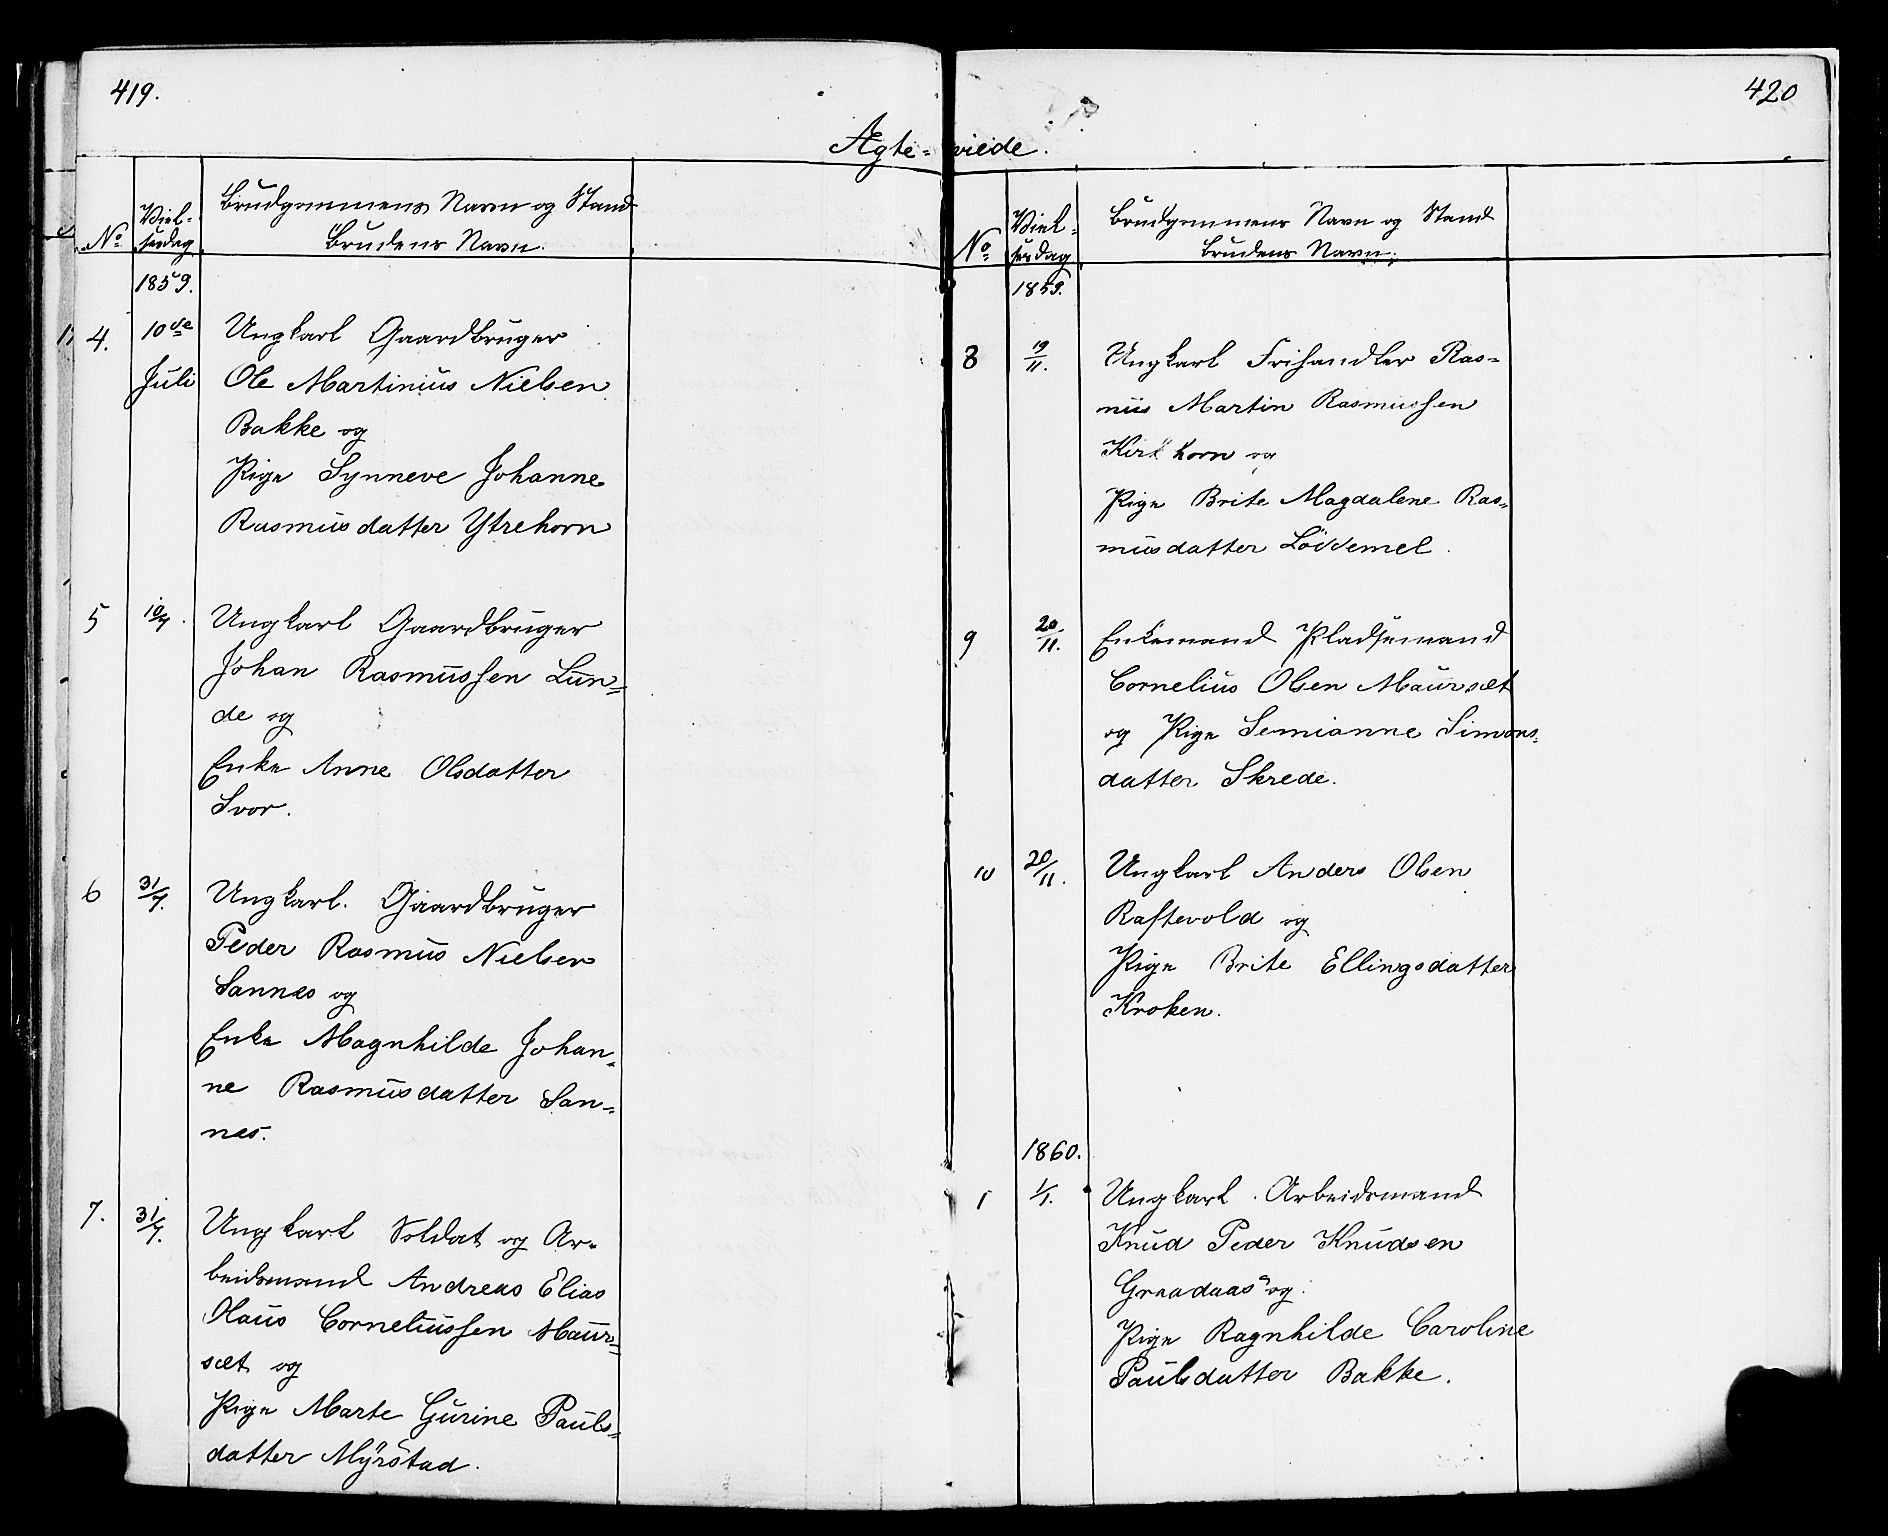 419.
420
Ægte-viede.
No
Viel-
sesdag
Brudgommens Navn og Stand
Brudens Navn.
1859.
4.
10de
Juli
Ungkarl Gaardbruger
Ole Martinius Nielsen
Bakke og
Pige Synneve Johanne
Rasmusdatter Ytrehorn
5
10/7.
Ungkarl Gaardbruger
Johan Rasmussen Lun=
de og
Enke Anne Olsdatter
Svor.
6
31/7.
Ungkarl. Gaardbruger
Peder Rasmus Nielsen
Sannes og
Enke Magnhilde Johan=
ne Rasmusdatter San=
nes.
7.
31/7.
Ungkarl Soldat og Ar-
beidsmand Andreas Elias
Olaus Corneliussen Maur=
sæt og
Pige Marte Gurine Pauls=
datter Myrstad.
No
Viel-
sesdag
Brudgommens Navn og Stand
Brudens Navn.
1859.
8
19/11.
Ungkarl Frihandler Ras=
mus Martin Rasmussen
Kirkhorn og
Pige Brite Magdalene Ras=
musdatter Lödemel.
9
20/11.
Enkemand Pladsemand
Cornelius Olsen Maursæt
og Pige Semianne Simons=
datter Skrede.
10
20/11.
Ungkarl Anders Olsen
Raftevold og
Pige Brite Ellingsdatter
Kroken.
1860.
1
1/1.
Ungkarl. Arbeidsmand
Knud Peder Knudsen
Graadaas og
Pige Ragnhilde Caroline
Paulsdatter Bakke.